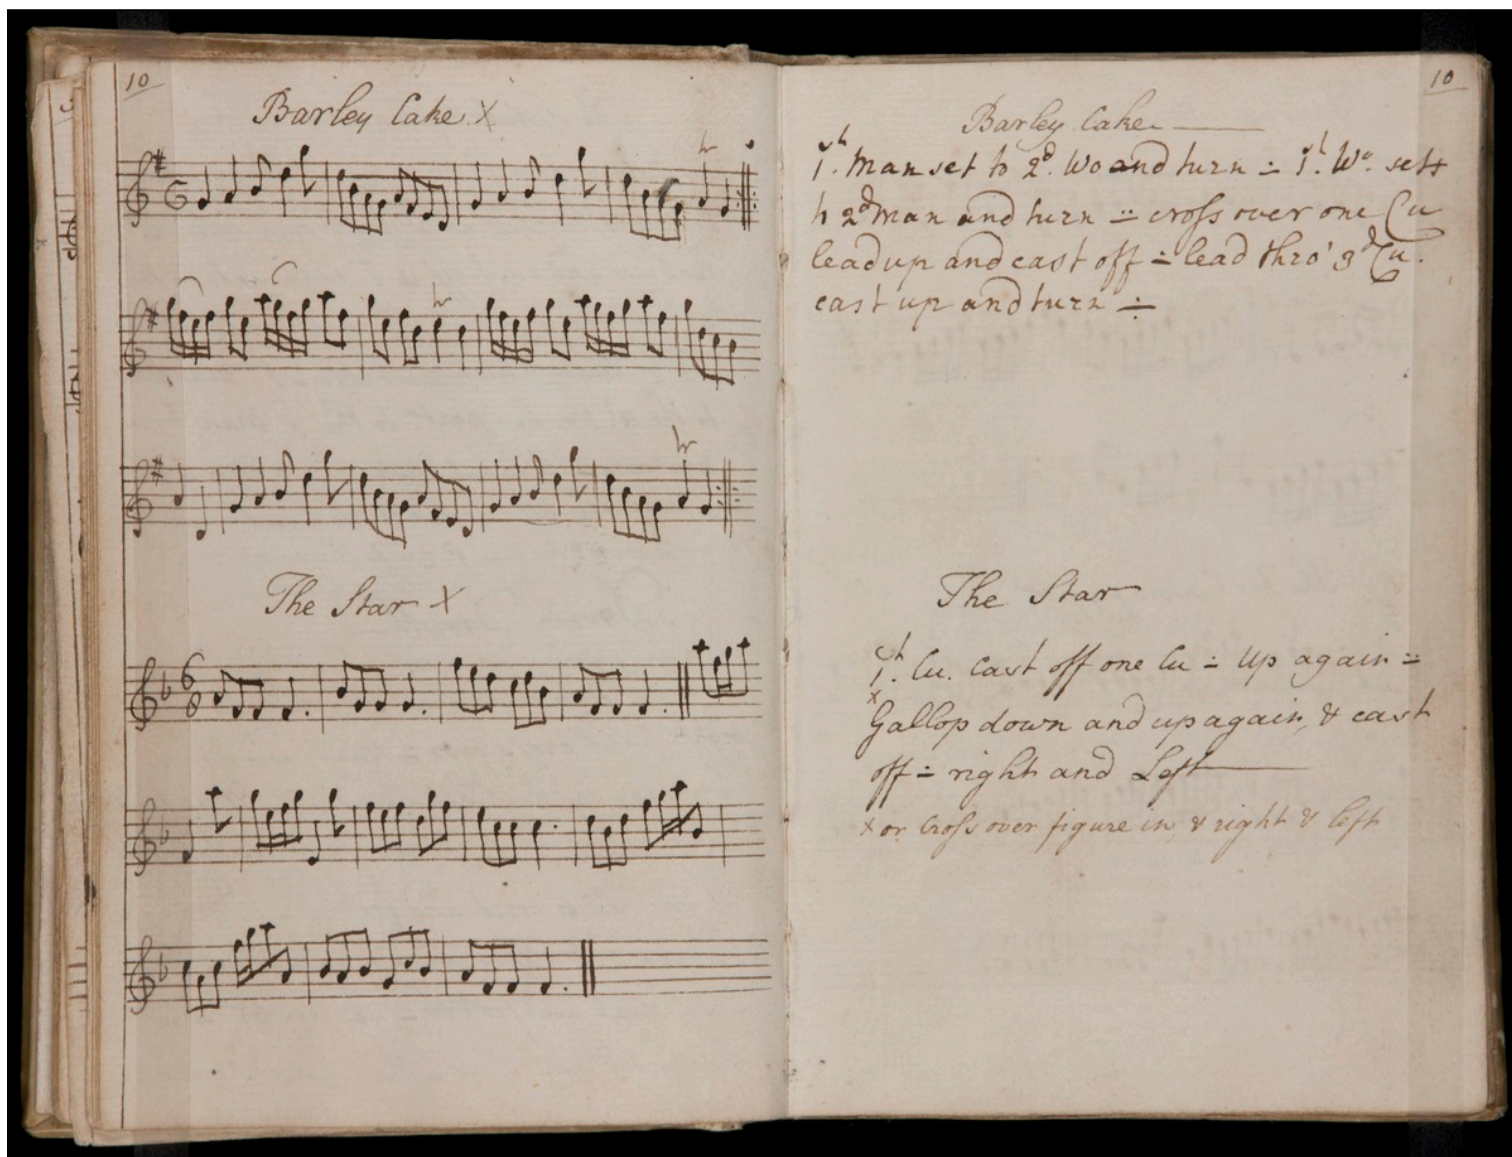 10
Barley Cake X
The Star X
6
8
10
Barley Cake
1st. Man set to 2d. Wo and turn ÷ 1st. Wo. sets
to 2d man and turn ÷ cross over one Cu
lead up and cast off ÷ lead thro' 3d Cu.
cast up and turn ÷
The Star
1st. Cu. Cast off one Cu ÷ Up again ÷
x
Gallop down and up again, & cast
off ÷ right and Left
x or Cross over figure in & right & left